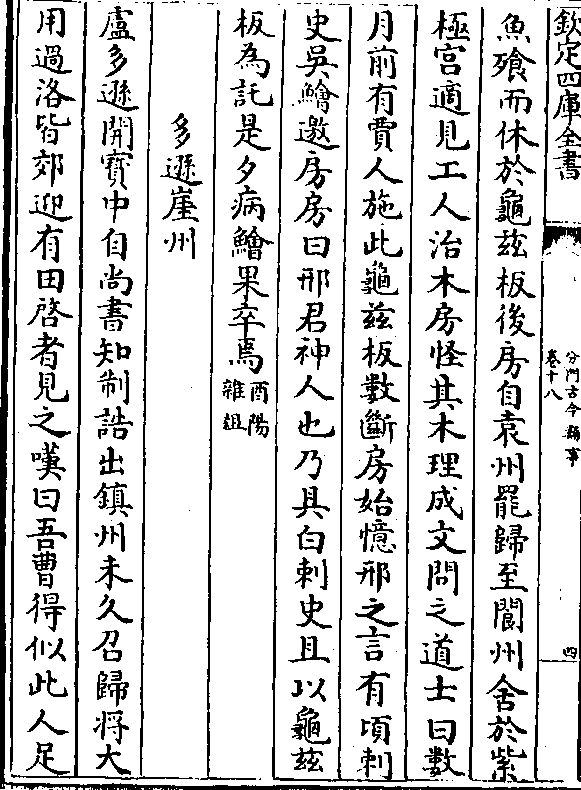 欽定四庫全書
分門古今類事
卷十八
四
魚飱而休於龜兹板後房自袁州罷歸至閬州舍於紫
極宫適見工人治木房怪其木理成文問之道士曰數
月前有賈人施此龜兹板數斷房始憶邢之言有頃刺
史吳鱠邀房房曰邢君神人也乃具白刺史且以龜兹
板為託是夕病鱠果卒焉酉陽
雜俎
多遜崖州
盧多遜開寳中自尚書知制誥出鎮州未久召歸将大
用過洛皆郊迎有田啓者見之嘆曰吾曹得似此人足